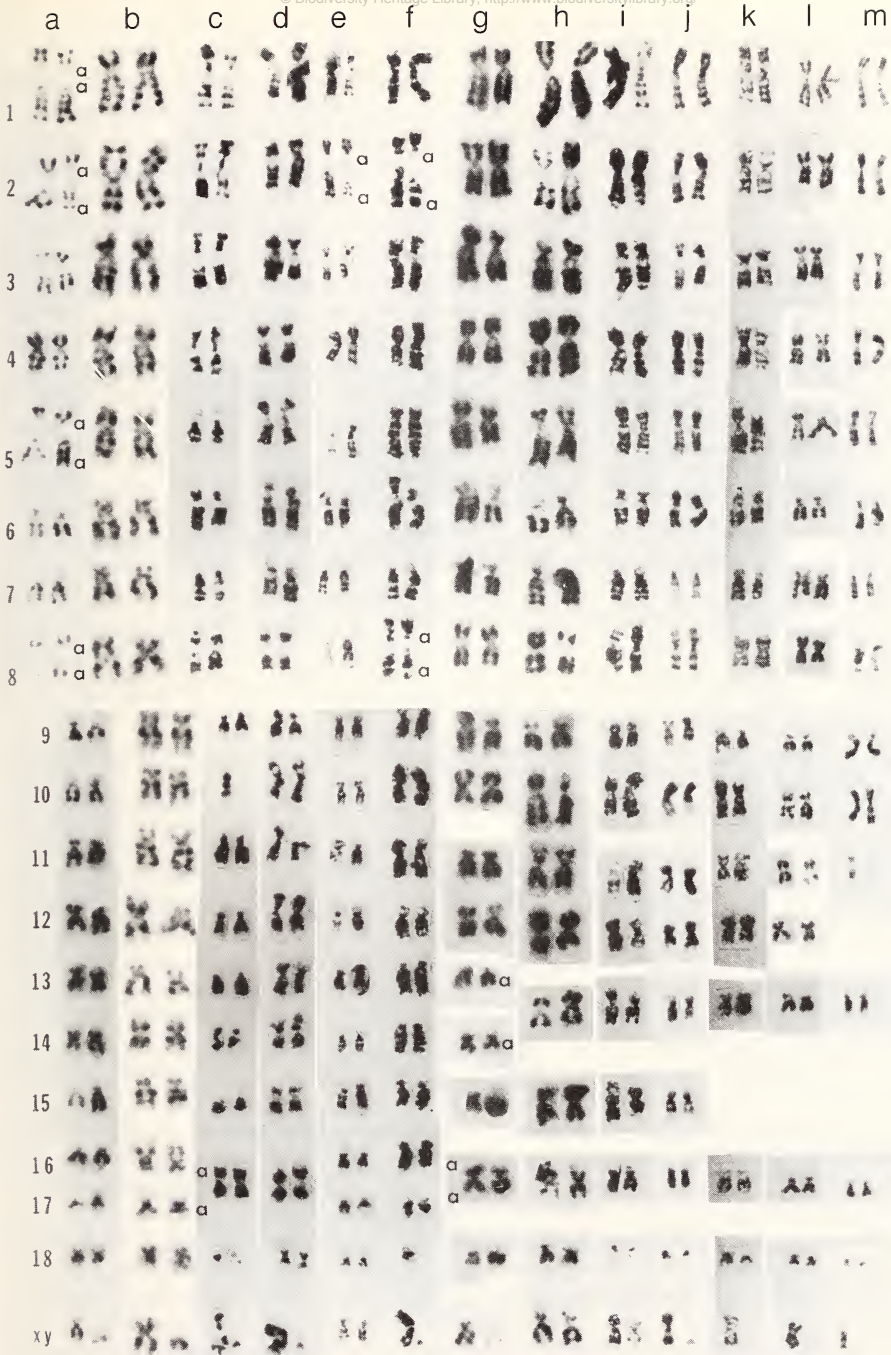 © Biodiversity Heritage Library, http://www.biodiversitylibrary.org/
a b c d e f g h i j k l m
a
a
1
a
2
a a a
a
3
4
a
5
a
6
7
a a
8
a a
9
10
11
12
13
a
14
a
15
16
a a
a
17
a
18
xy